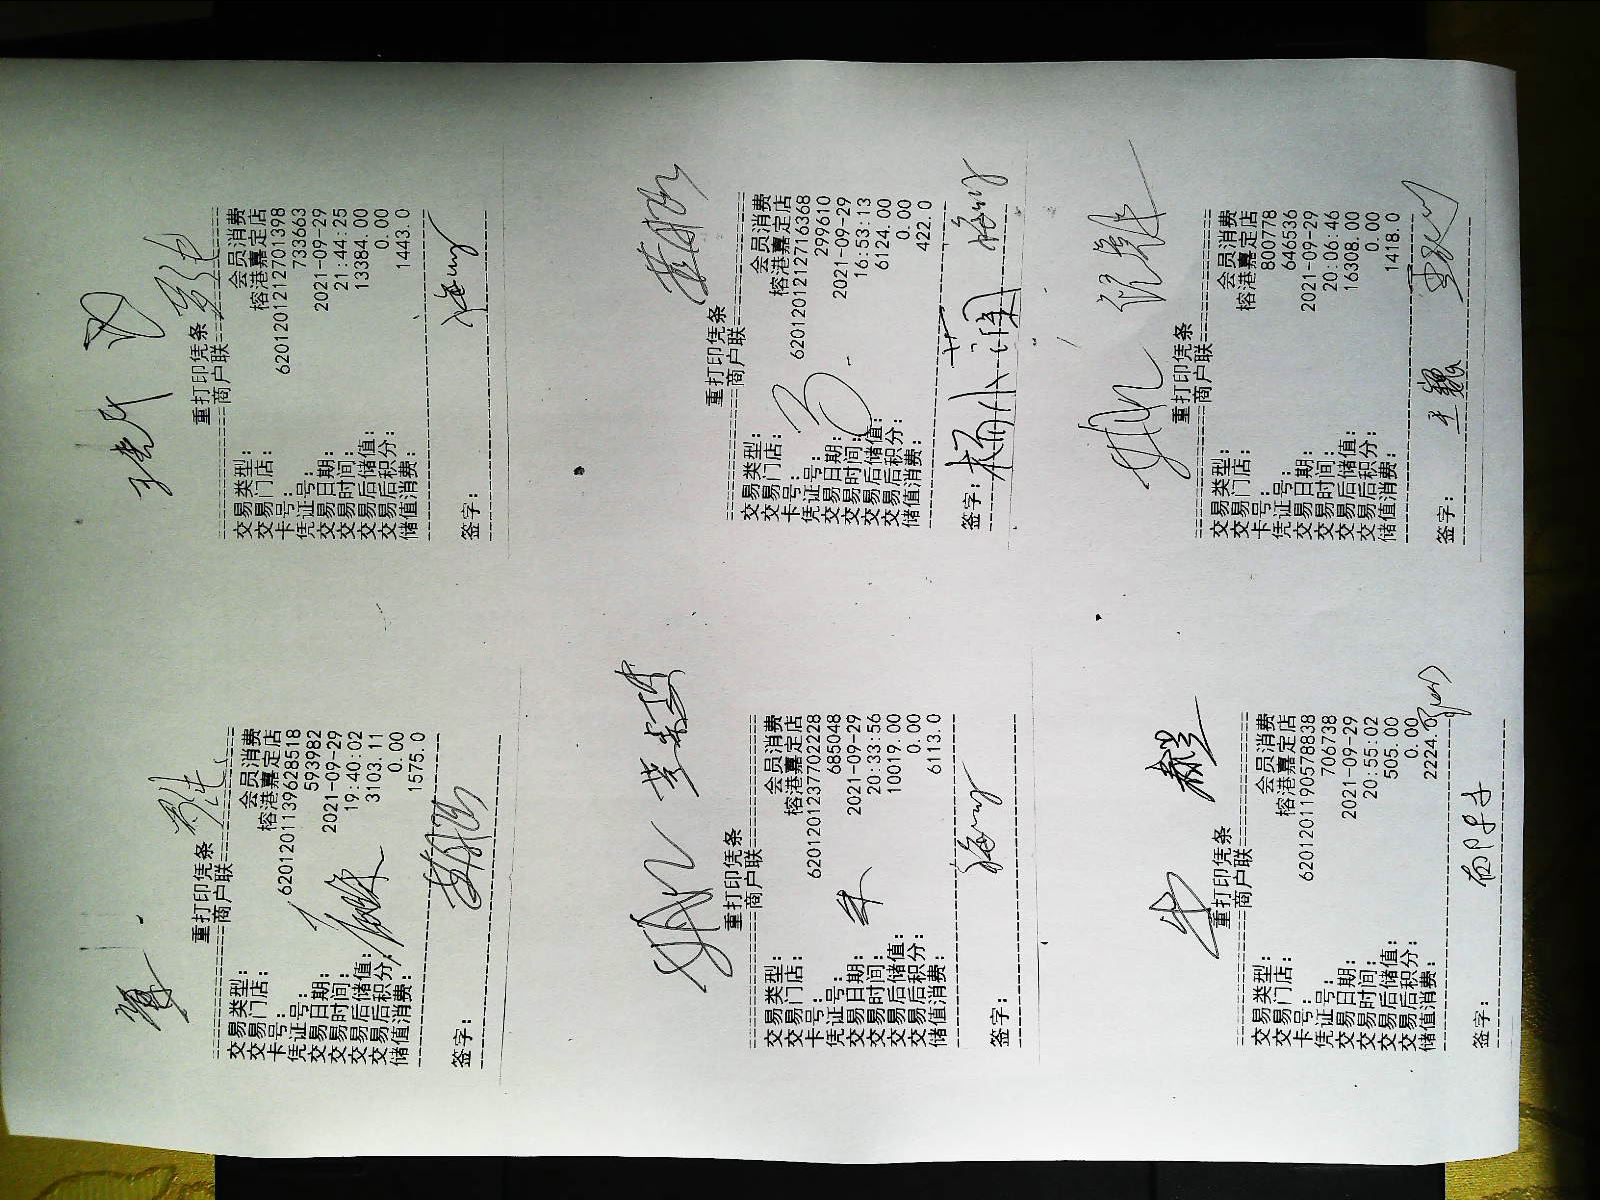 重打印凭条
商户联
交易类型： 会员消费
交易门店： 榕港嘉定店
卡号： 6201201139628518
凭证号： 593982
交易日期： 2021-09-29
交易时间： 19:40:02
交易后储值： 3103.11
交易后积分： 0.00
储值消费： 1575.0
签字：
重打印凭条
商户联
交易类型： 会员消费
交易门店： 榕港嘉定店
卡号： 6201201212701398
凭证号： 733663
交易日期： 2021-09-29
交易时间： 21:44:25
交易后储值： 13384.00
交易后积分： 0.00
储值消费： 1443.0
签字：
重打印凭条
商户联
交易类型： 会员消费
交易门店： 榕港嘉定店
卡号： 6201201237702228
凭证号： 685048
交易日期： 2021-09-29
交易时间： 20:33:56
交易后储值： 10019.00
交易后积分： 0.00
储值消费： 6113.0
签字：
重打印凭条
商户联
交易类型： 会员消费
交易门店： 榕港嘉定店
卡号： 6201201212716368
凭证号： 299610
交易日期： 2021-09-29
交易时间： 16:53:13
交易后储值： 6124.00
交易后积分： 0.00
储值消费： 422.0
签字：
重打印凭条
商户联
交易类型： 会员消费
交易门店： 榕港嘉定店
卡号： 6201201190578838
凭证号： 706738
交易日期： 2021-09-29
交易时间： 20:55:02
交易后储值： 505.00
交易后积分： 0.00
储值消费： 2224.0
签字：
重打印凭条
商户联
交易类型： 会员消费
交易门店： 榕港嘉定店
卡号： 800778
凭证号： 646536
交易日期： 2021-09-29
交易时间： 20:06:46
交易后储值： 16308.00
交易后积分： 0.00
储值消费： 1418.0
王巍
签字：